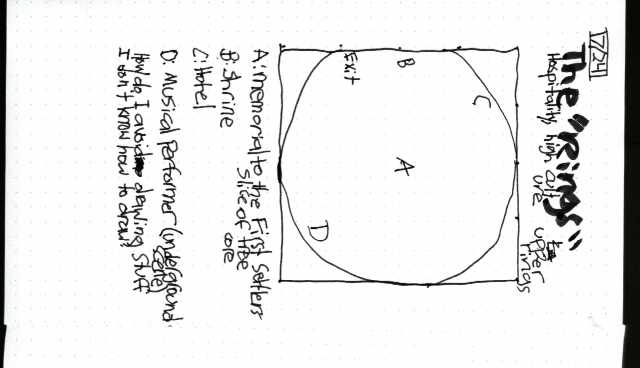 The "Rings"
Hospitality, high cult
ure upper
rings
C
B
Exit
A
D
A: Memorial to the First Settlers
slice of tree
core
B: Shrine
C: Hotel
D: Musical Performer (underground
scene)
How do I avoid drawing stuff
I don't know how to draw?